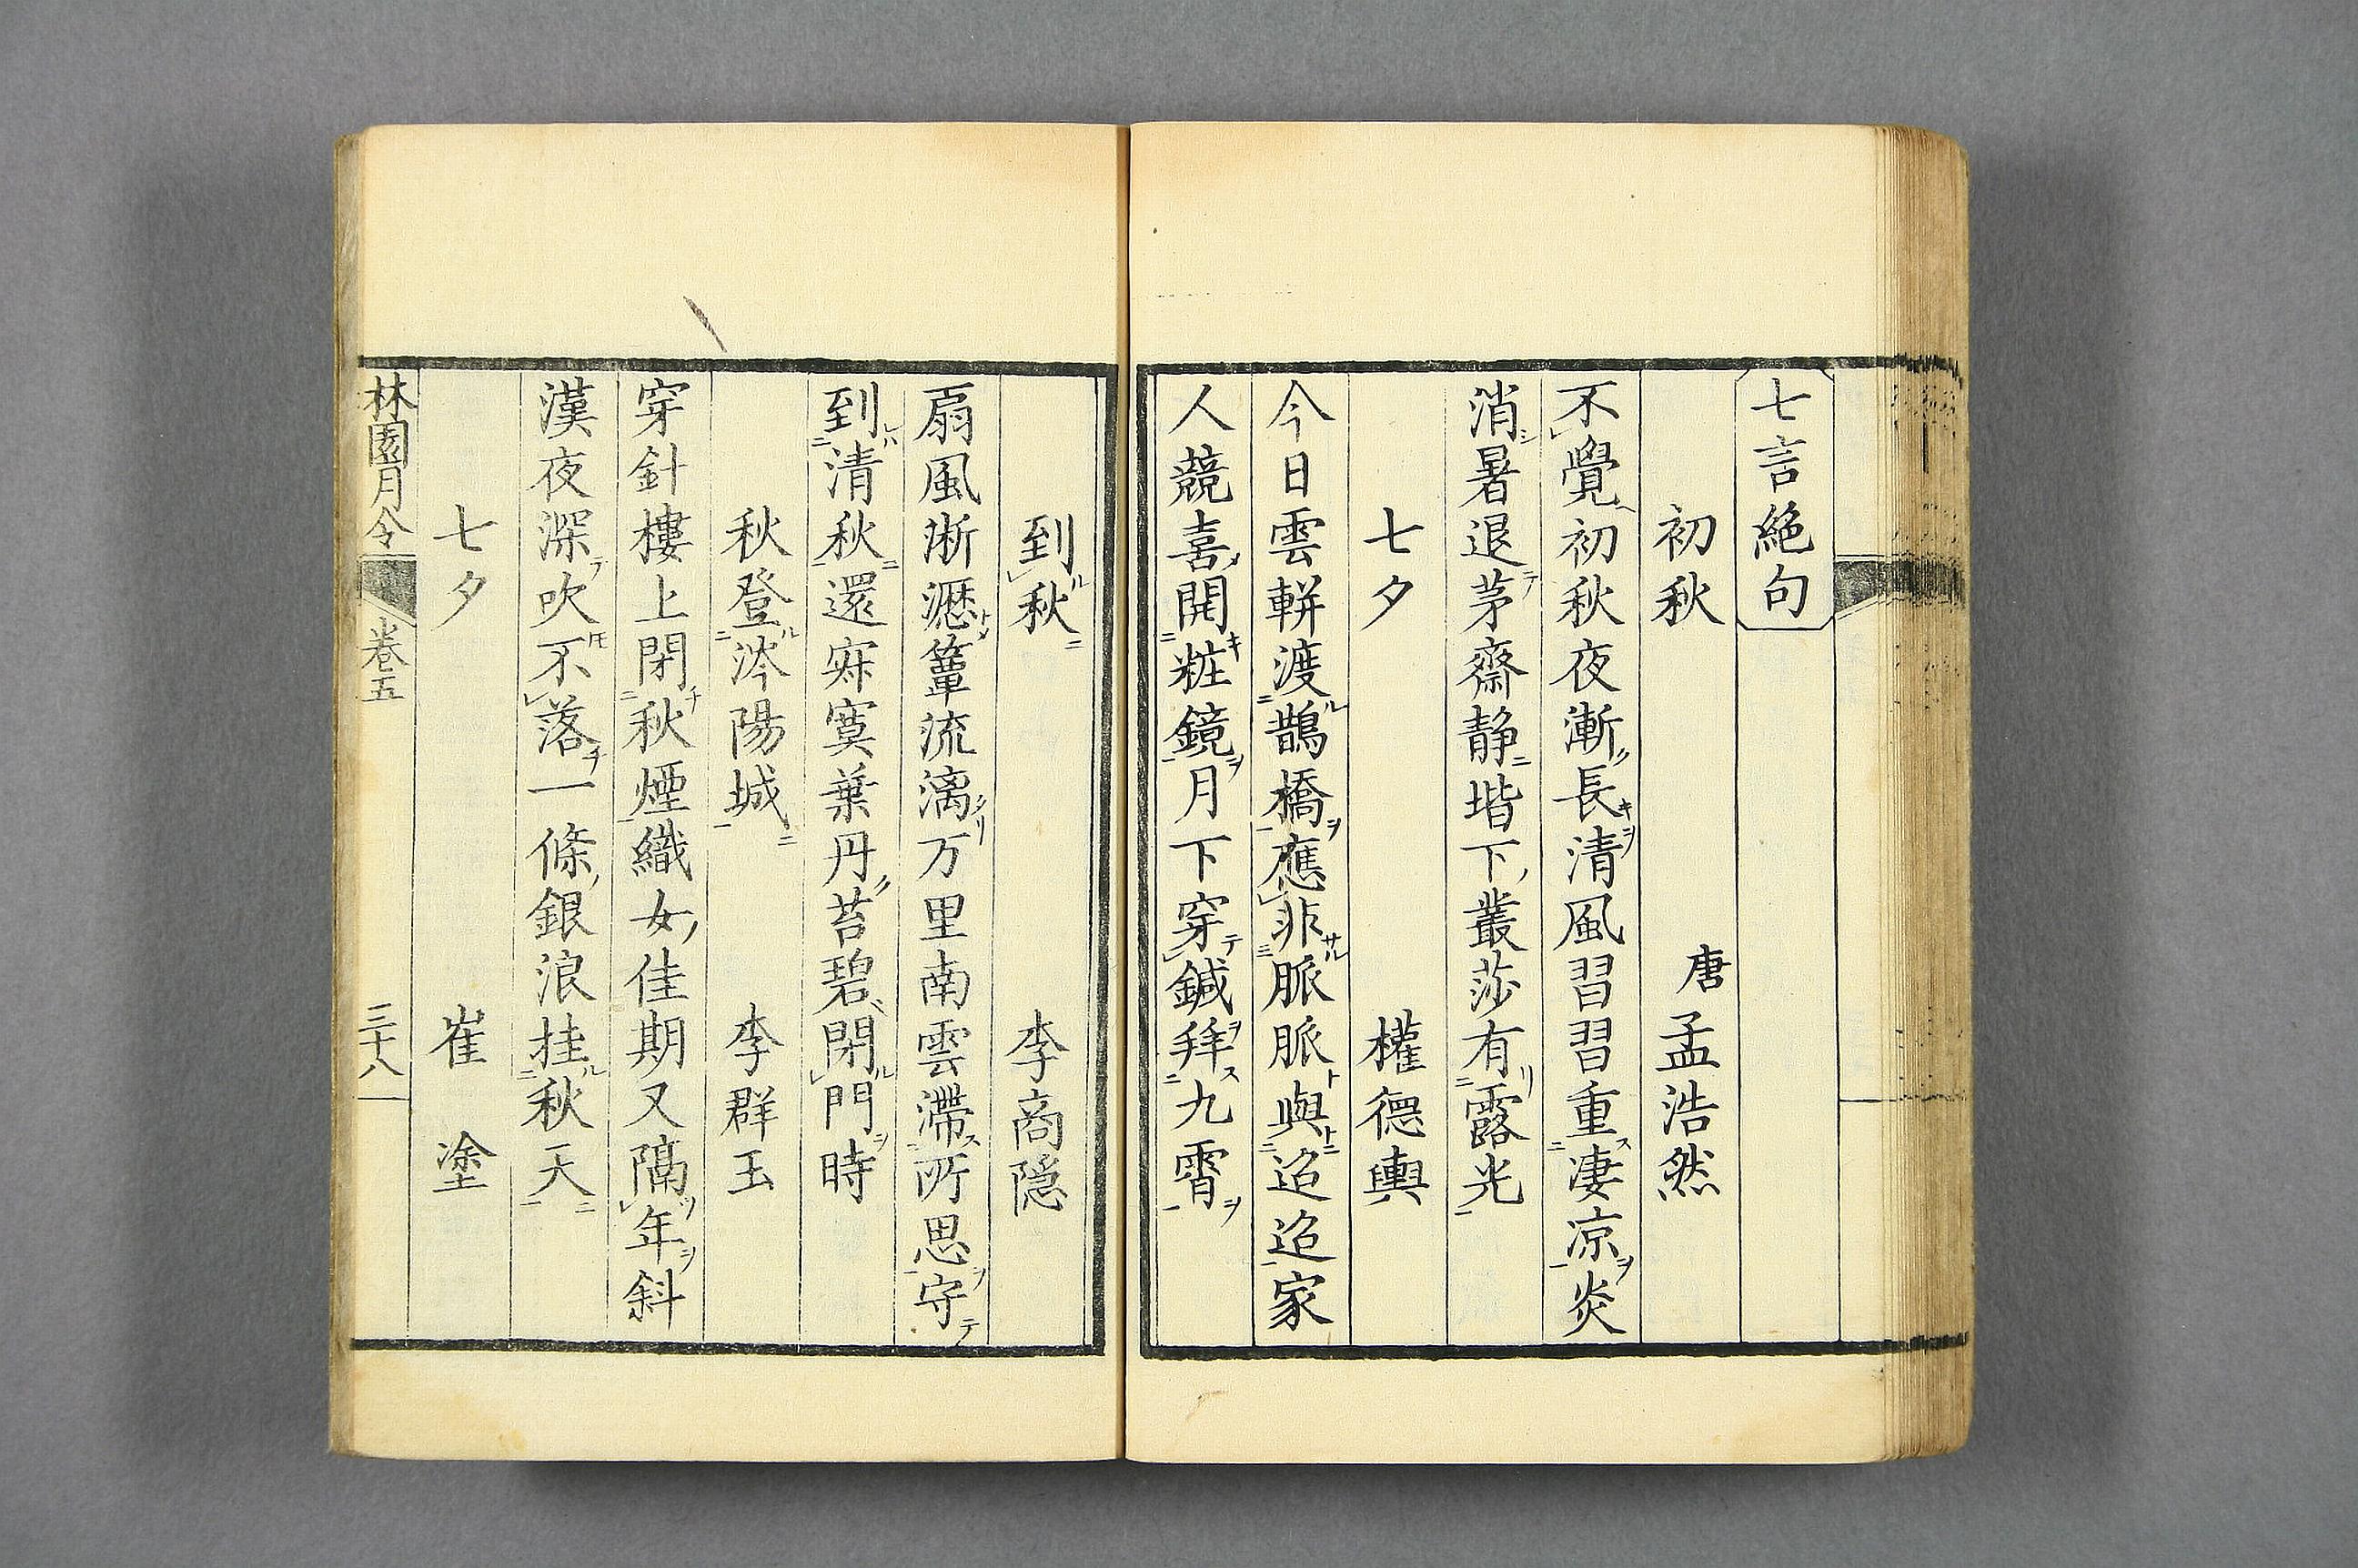 七言絶句
初秋 唐 孟浩然
不覺初秋夜漸長清風習習重凄凉炎
消暑退茅齋静堦下叢莎有露光
七夕 權德輿
今日雲軿渡鵲橋應非脈脈與迢迢家
人競喜開粧鏡月下穿鍼拜九霄
到秋 李商隠
扇風淅瀝簟流漓万里南雲滯所思守
到清秋還寂寞葉丹苔碧閉門時
秋登涔陽城 李群玉
穿針樓上閉秋煙織女佳期又隔年斜
漢夜深吹不落一條銀浪挂秋天
七夕 崔塗
林園月令 卷五 三十八